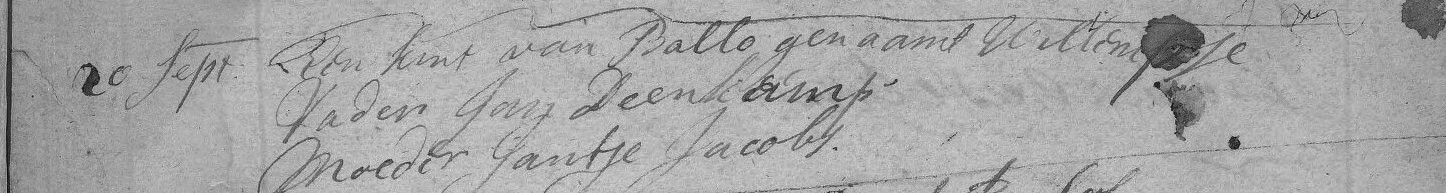 20 Sept. Een kint van Ballo genaamt Willemtje
Vader Jan Deenkamp
Moeder Jantje Jacobs.